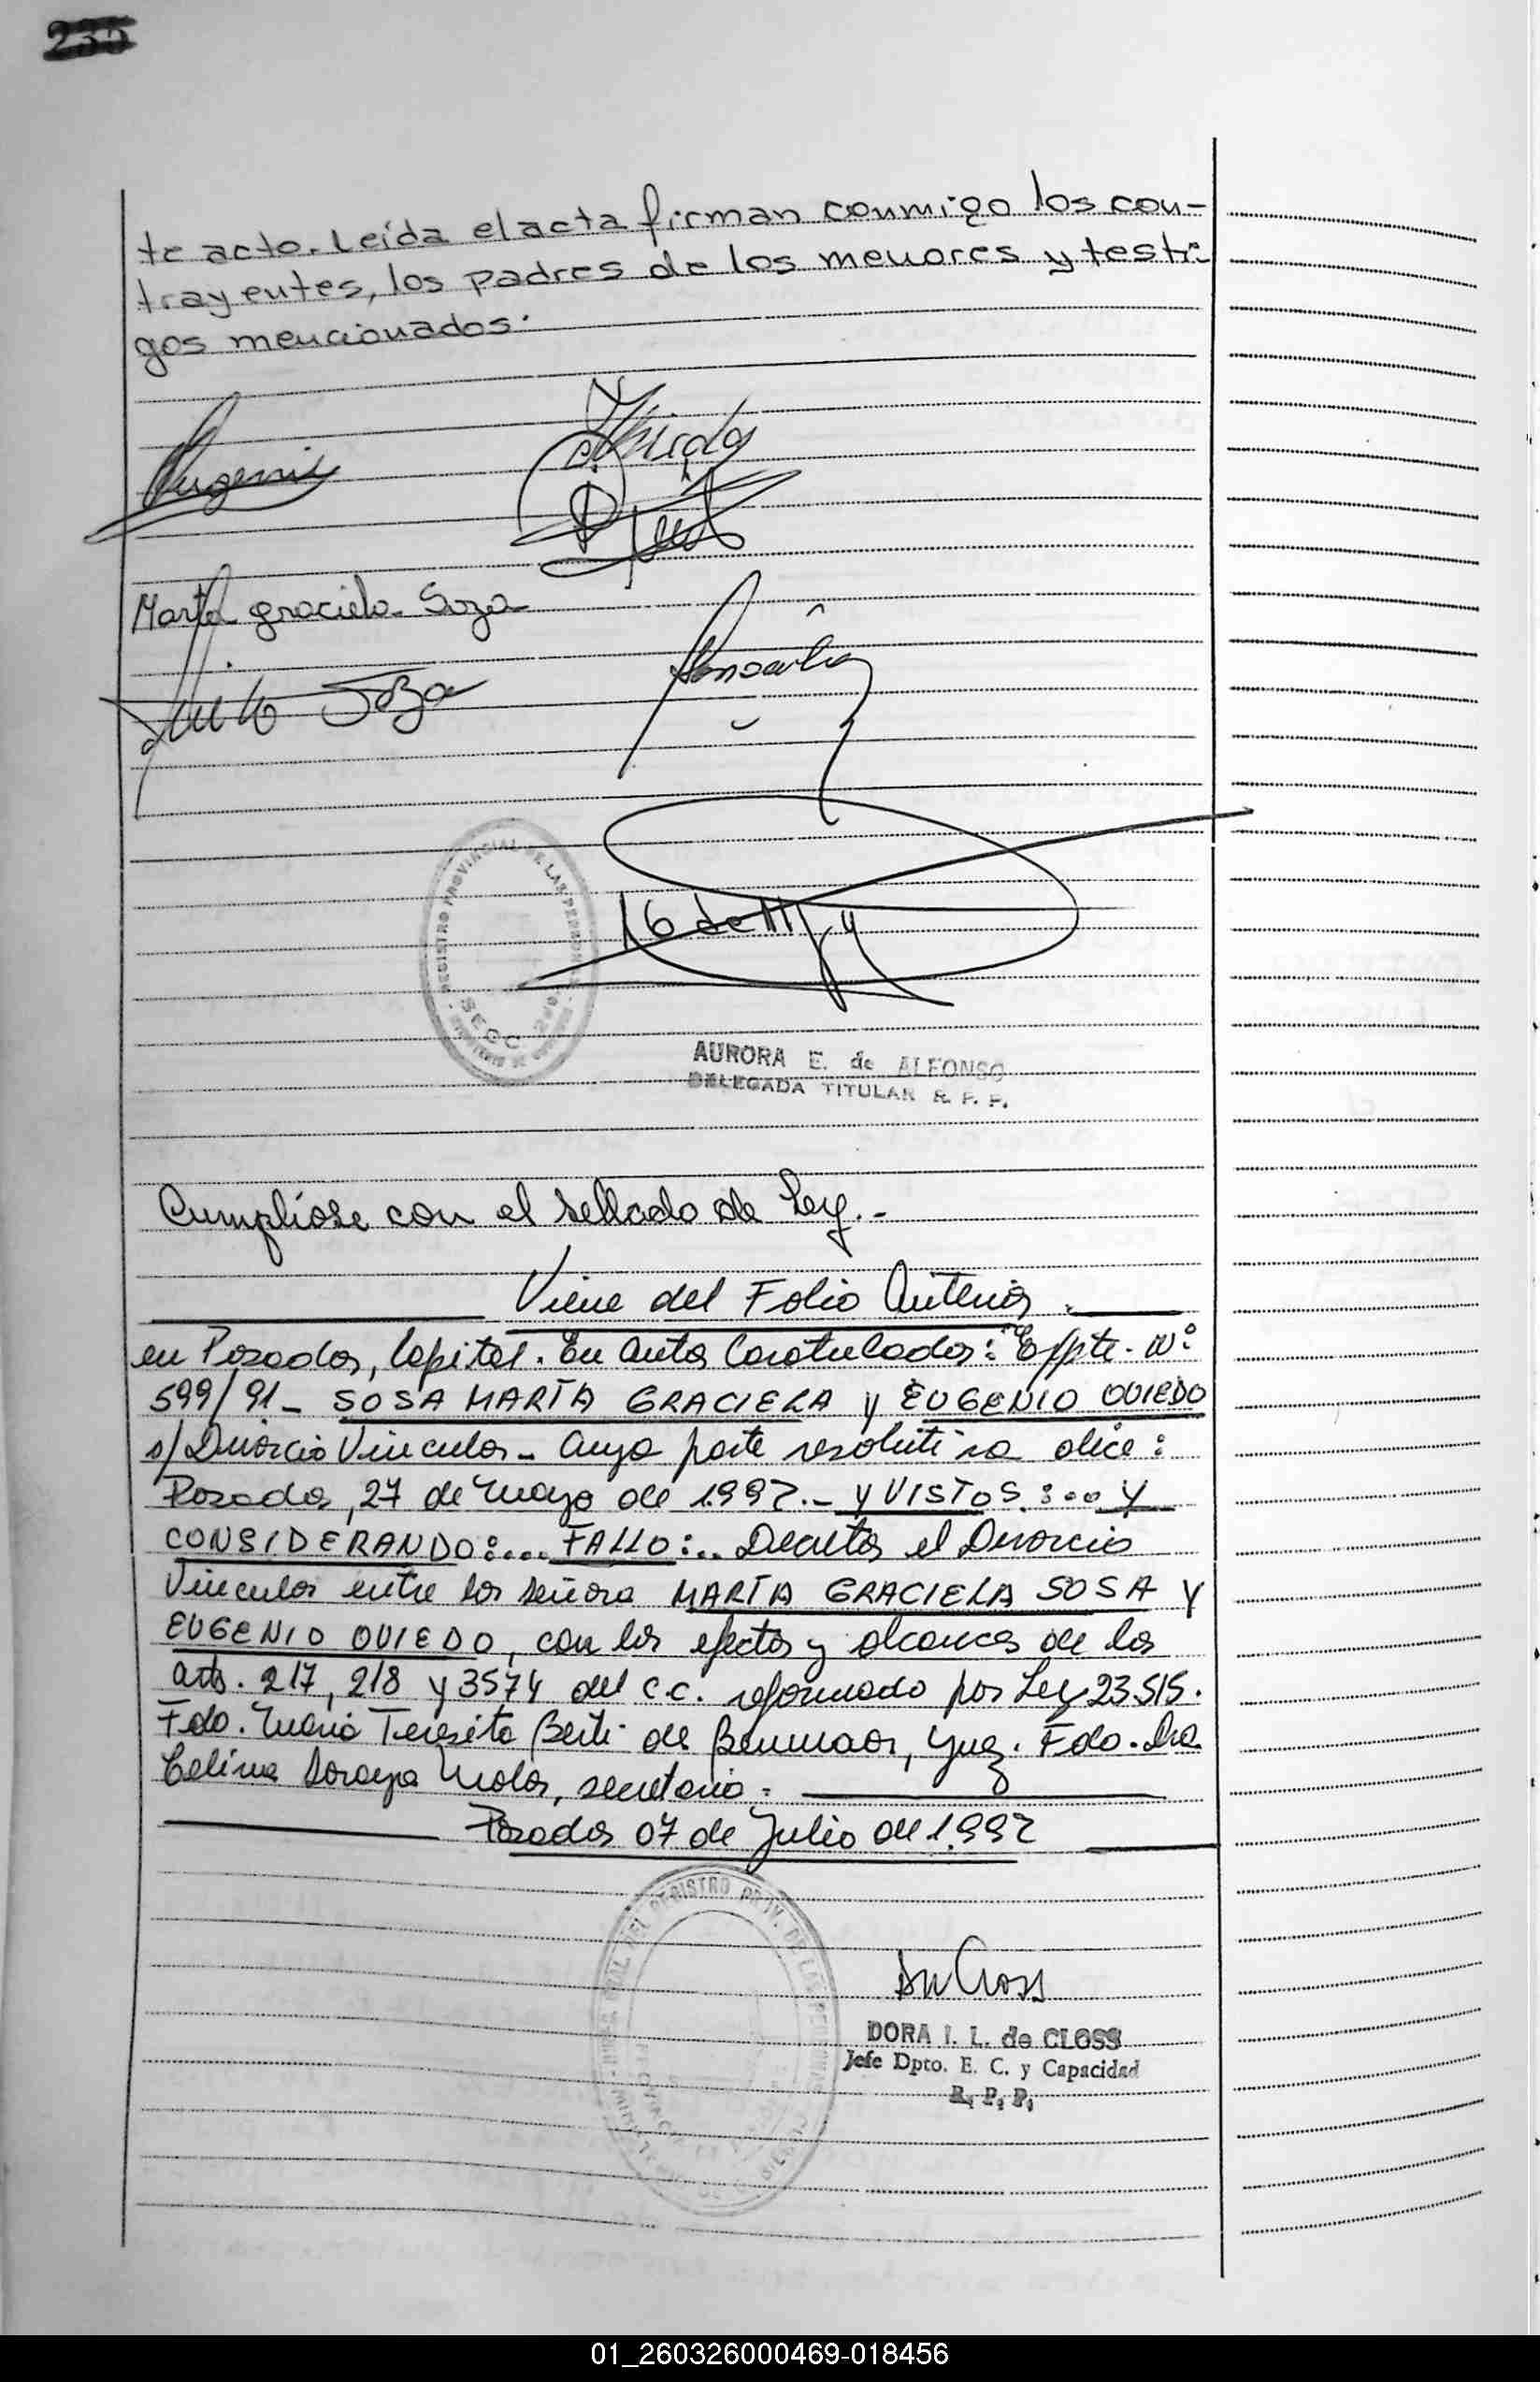 235
te acto. Leída el acta firman conmigo los con-
trayentes, los padres de los menores y testi-
gos mencionados.
Eugenio
Oviedo
Marta graciela Soza
Julio Soza
REGISTRO PROVINCIAL DE LAS PERSONAS
SECC
AURORA E. de ALFONSO
DELEGADA TITULAR R. P. P.
Cumplióse con el sellado de Ley.-
Viene del Folio Anterior.
en Posadas, Capital. En autos Caratulados: "Expte. Nº
599/91 - SOSA MARTA GRACIELA y EUGENIO OVIEDO
s/Divorcio Vincular - Cuya parte resolutiva dice:
Posadas, 27 de Mayo de 1.992.- Y VISTOS:... Y
CONSIDERANDO:... FALLO:.. Decretar el Divorcio
Vincular entre los señores MARTA GRACIELA SOSA Y
EUGENIO OVIEDO, con los efectos y alcances de los
arts. 217, 218 y 3574 del C.C. reformado por Ley 23.515.
Fdo. María Teresita Berti de, Juez. Fdo. Dra.
Celina Soraya, secretaria.
Posadas 07 de Julio de 1.992
DEL REGISTRO PROV. DE LAS PERSONAS
DORA I. L. de CLOSS
Jefe Dpto. E. C. y Capacidad
R. P. P.
01_260326000469-018456